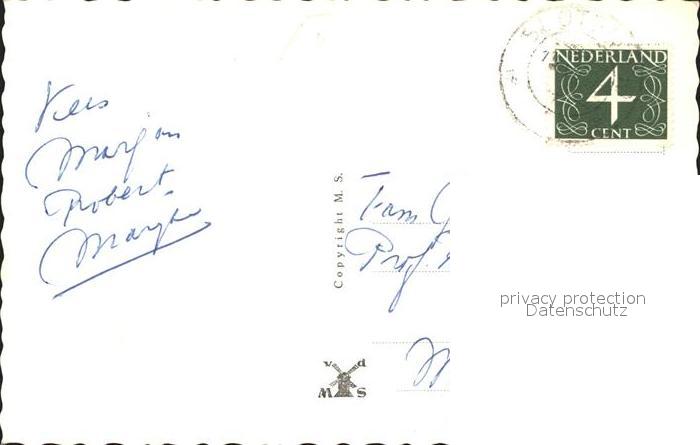 Kees
Marjan
Robert.
Marijke
SLOT
NEDERLAND
4
CENT
Copyright M. S.
Fam
Prof.
M
privacy protection
Datenschutz
v d
M S